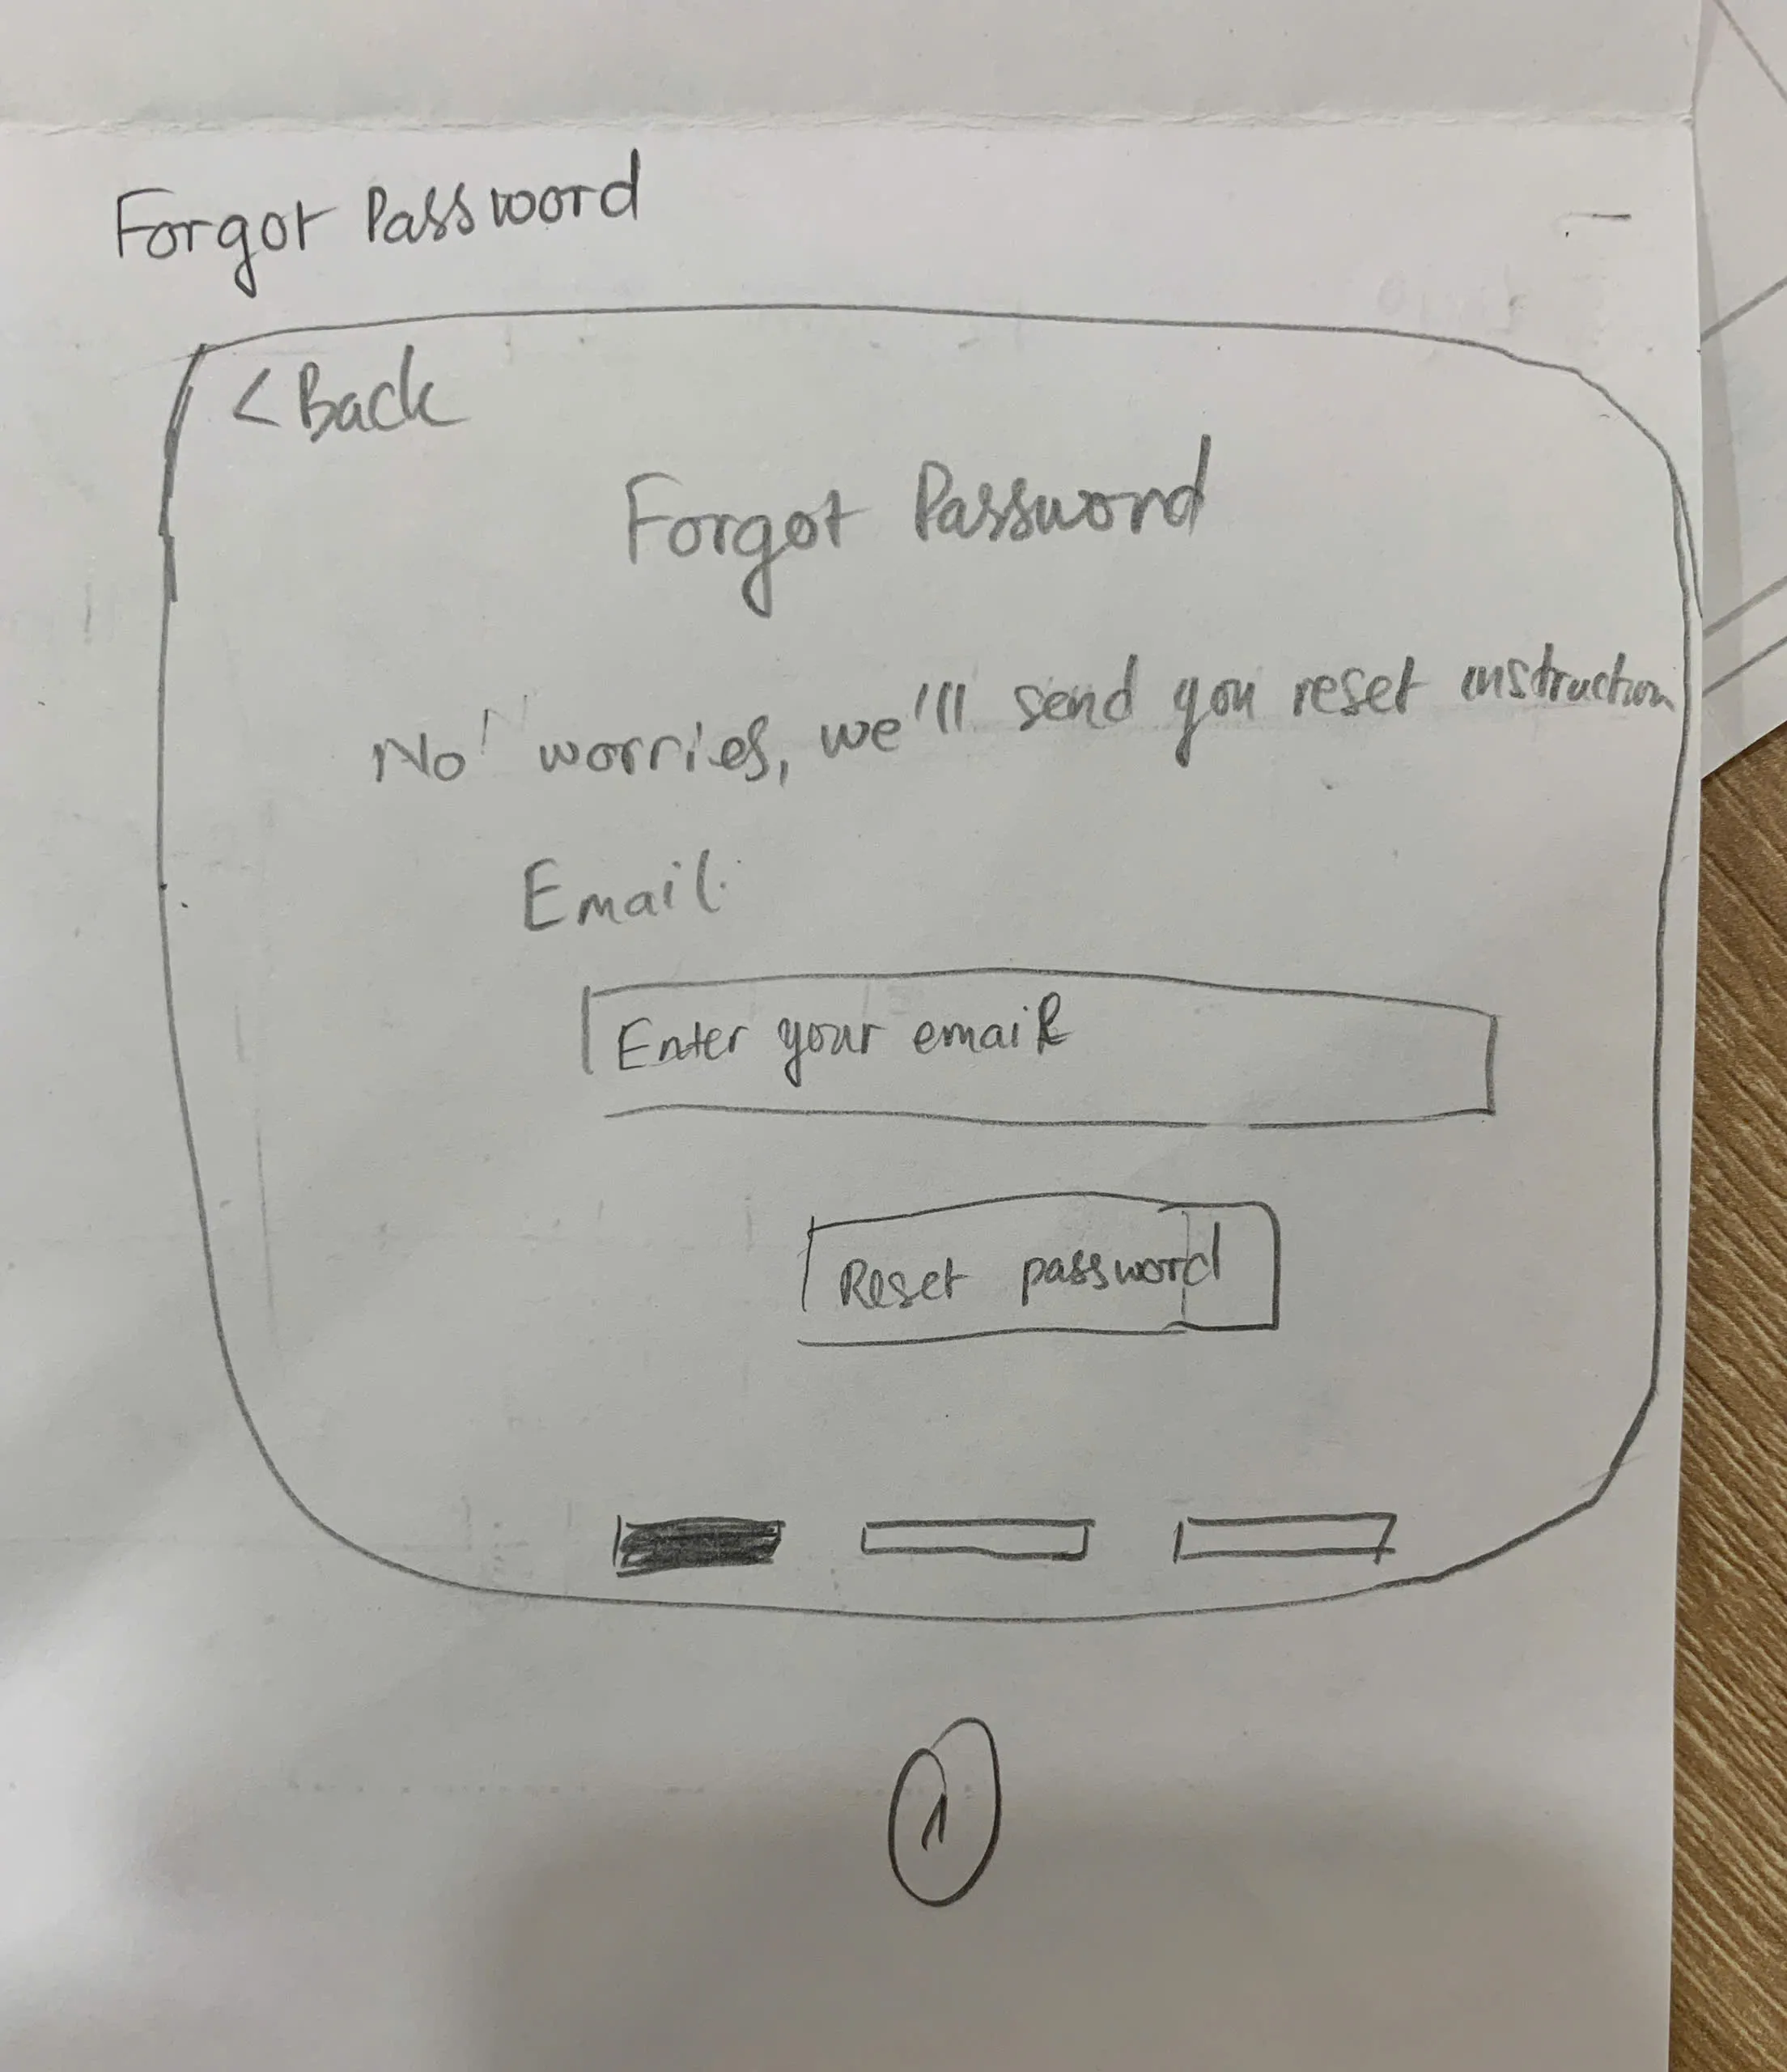 Forgot Password
< Back
Forgot Password
No worries, we'll send you reset instruction
Email
Enter your email
Reset password
1